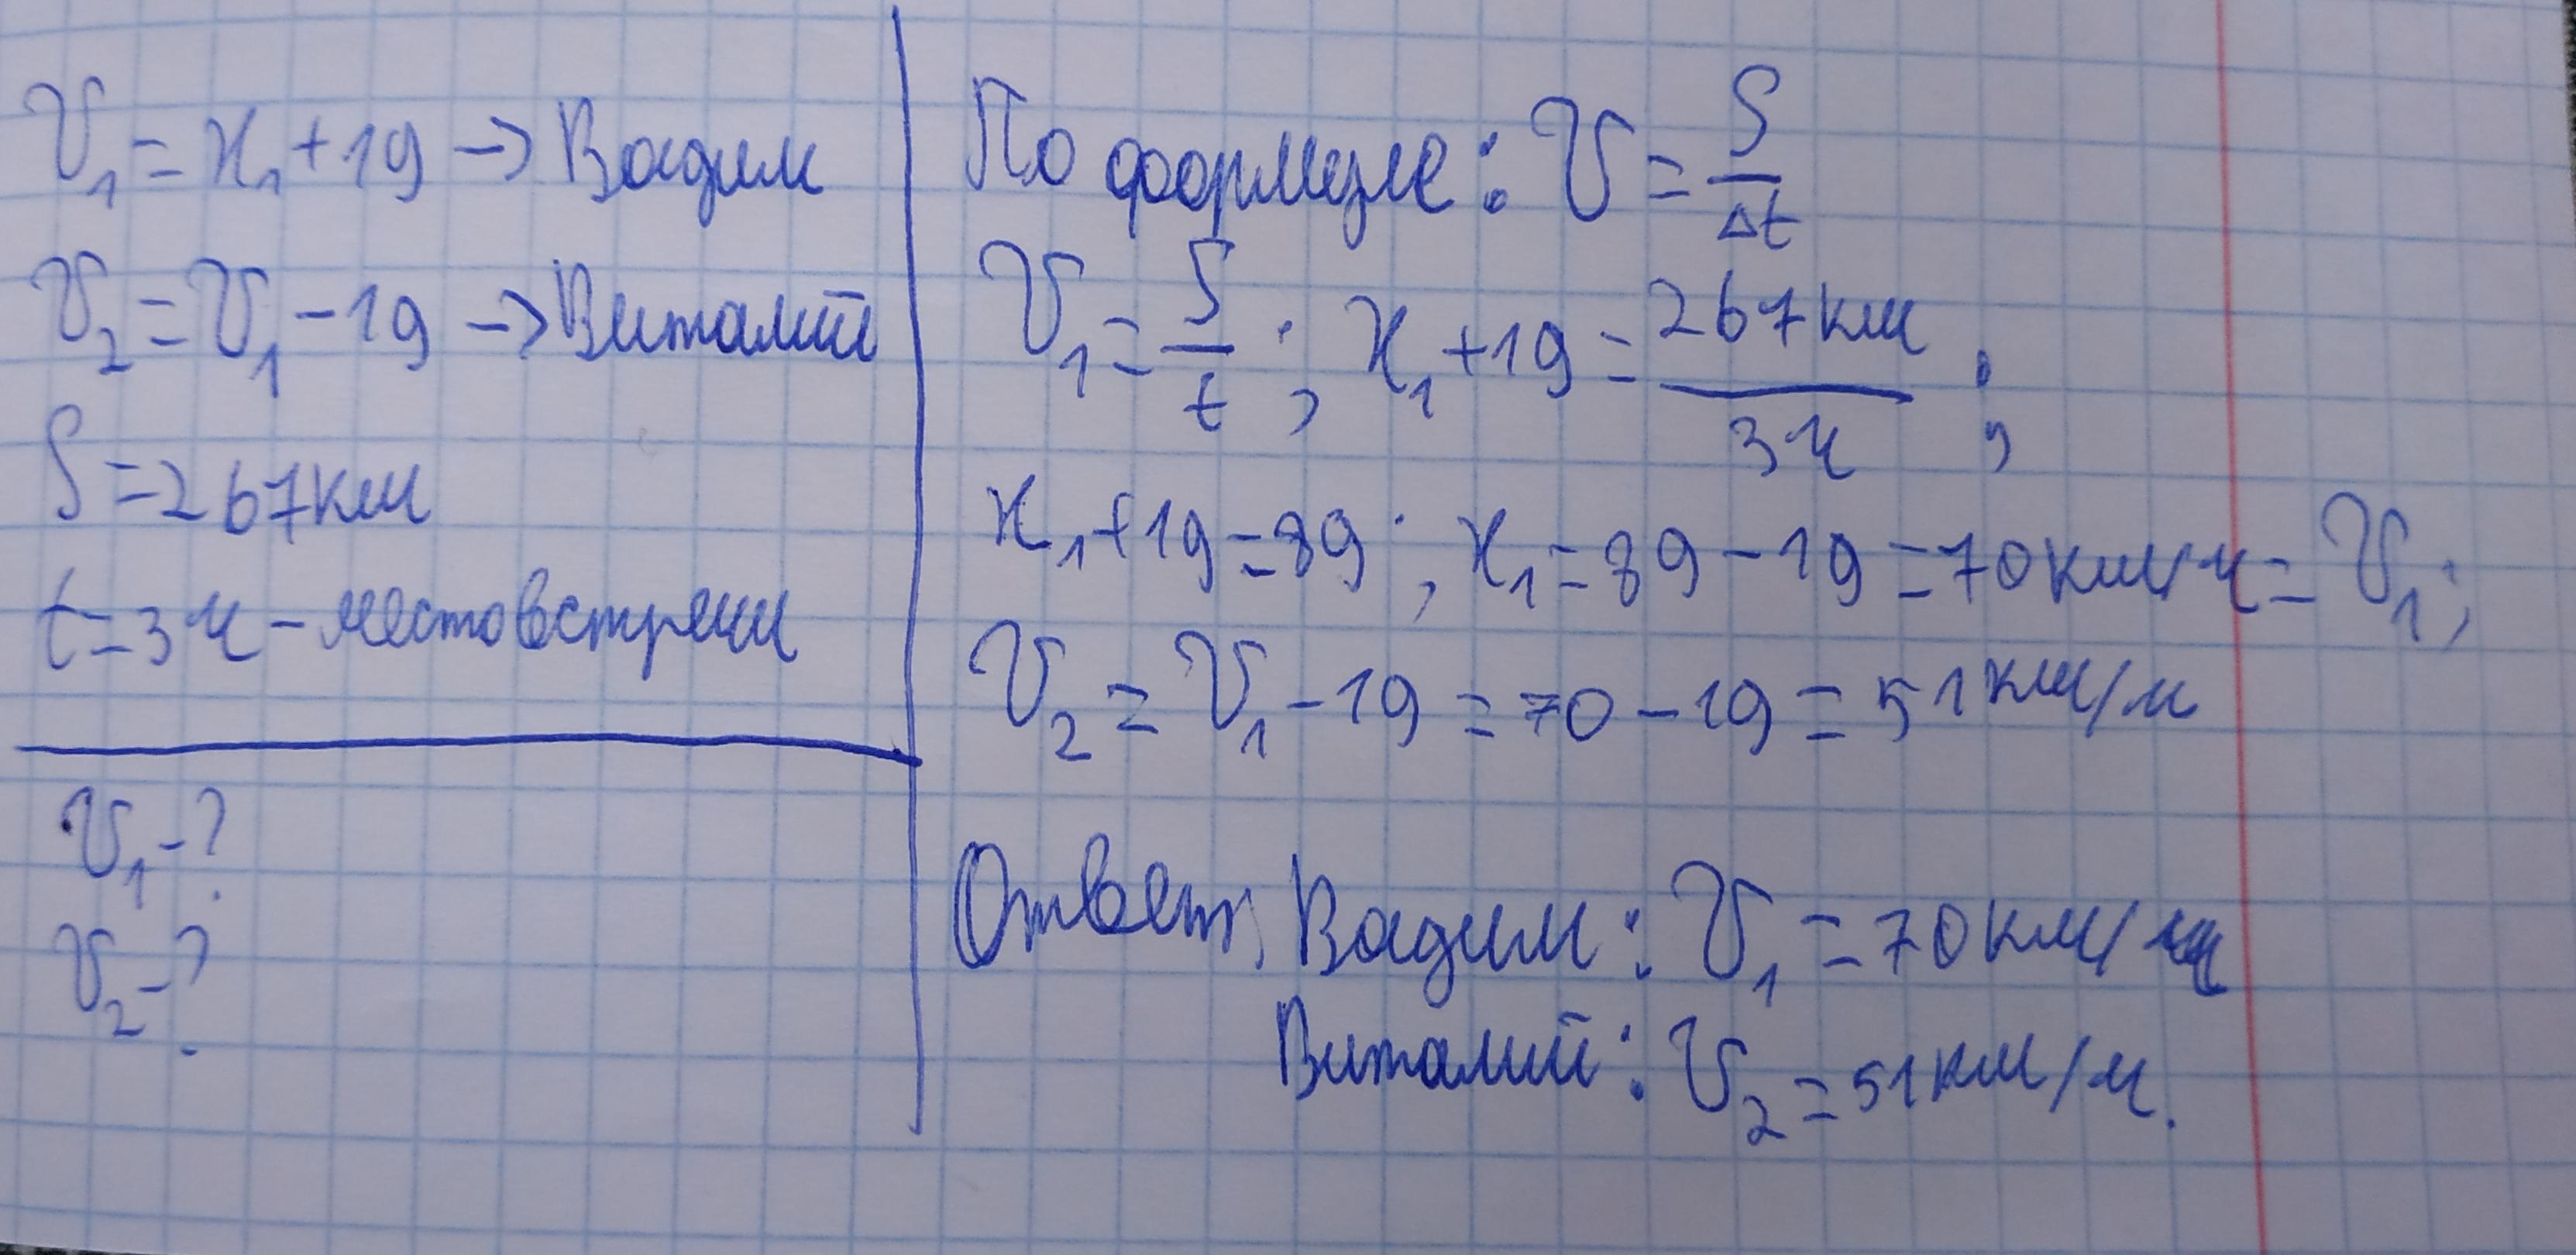 V₁ = x₁ + 19 → Вадим
V₂ = V₁ - 19 → Виталий
S = 267 км
t = 3 ч - место встречи
V₁ - ?
V₂ - ?
По формуле: V = S/Δt
V₁ = S/t ; x₁ + 19 = 267 км/3 ч ;
x₁ + 19 = 89 ; x₁ = 89 - 19 = 70 км/ч = V₁ ;
V₂ = V₁ - 19 = 70 - 19 = 51 км/ч
Ответ, Вадим: V₁ = 70 км/ч
Виталий: V₂ = 51 км/ч.